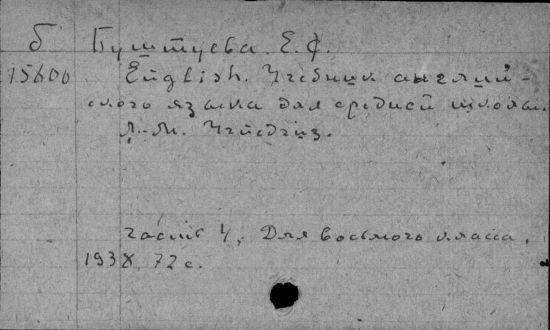 б Буштуева. Е. Ф.
15600 English. Учебник англий-
ского языка для средней школы.
Л.-М. Учпедгиз.
часть 4, Для восьмого класса,
1938, 72 с.